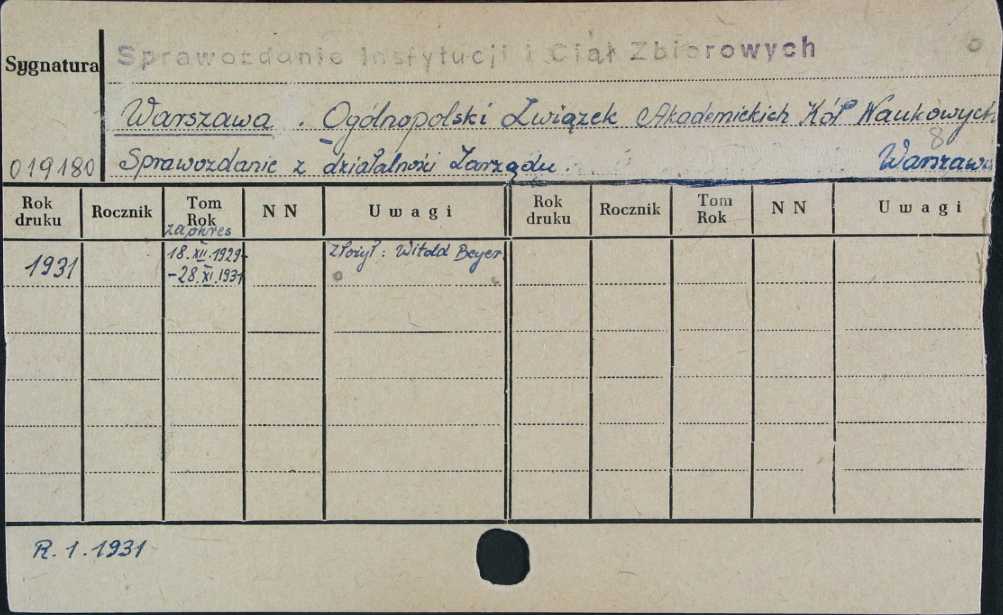 Sprawozdanie Instytucji i Ciał Zbiorowych
Sygnatura
Warszawa. Ogólnopolski Związek Akademickich Kół Naukowych
8
019180 Sprawozdanie z działalności Zarządu. Warszawa
Rok druku Rocznik Tom Rok NN Uwagi Rok druku Rocznik Tom Rok NN Uwagi
za okres
1931 18.XII.1929- Złożył: Witold Beyer
-28.XI.1931
R.1.1931